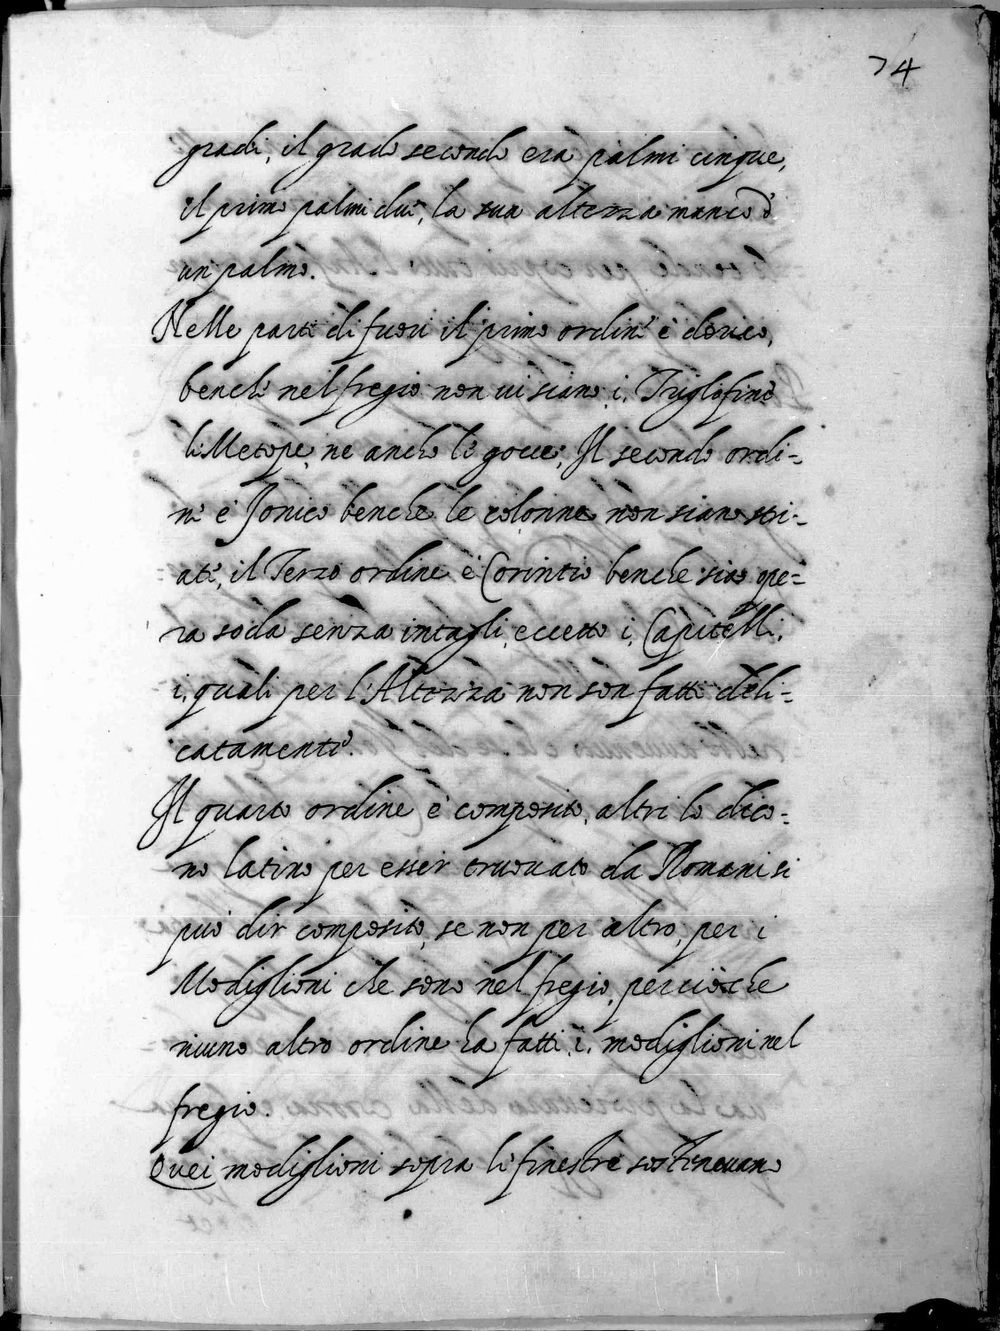 74
gradi, il grado secondo era palmi cinque,
il primo palmi dui, la sua altezza manco d'
un palmo.
Nelle parti di fuori il primo ordine è dorico,
benche nel fregio non ui siano i Triglifi ne
li Metope, ne anche le gocce, Il secondo ordi-
ne è Jonico benche le colonne non siano stri-
ate, il Terzo ordine è Corintio benche sia ope-
ra soda senza intagli, eccetto i Capitelli,
i quali per l'Altezza non son fatti deli-
catamente.
Il quarto ordine è composito, altri lo dico-
no latino per esser truouato da Romani si
può dir composito, se non per altro, per i
Modiglioni che sono nel fregio, percioche
niuno altro ordine ha fatti i modiglioni nel
fregio.
Quei modiglioni sopra le finestre sosteneuano